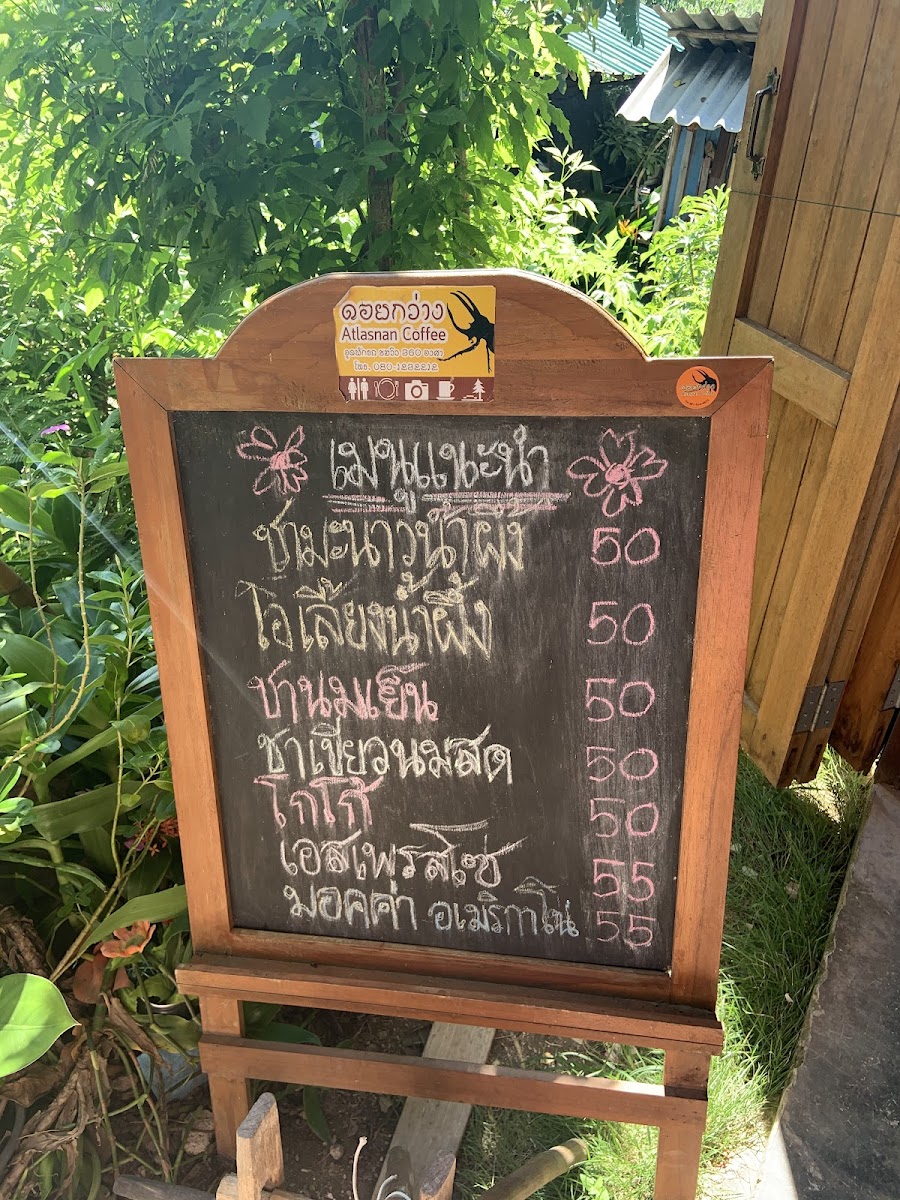 ดอยกว่าง
Atlasnan Coffee
จุดพักรถ ชมวิว 360 องศา
โทร. 080-1292212
เมนูแนะนำ
ชามะนาวน้ำผึ้ง 50
โอเลี้ยงน้ำผึ้ง 50
ชานมเย็น 50
ชาเขียวนมสด 50
โกโก้ 50
เอสเพรสโซ่ 55
มอคค่า อเมริกาโน่ 55